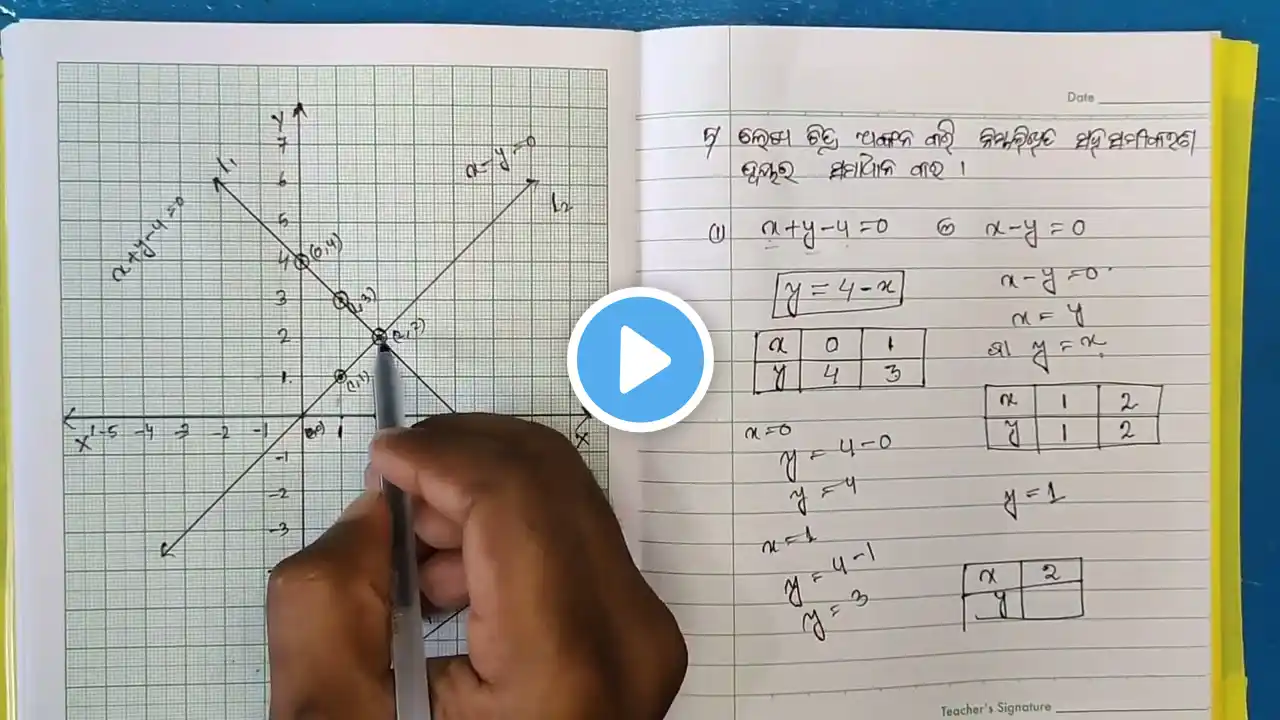 Y
7
6
5
4
3
2
1
L₁
x+y-4=0
x-y=0
L₂
(0,4)
(1,3)
(2,2)
(1,1)
X' -5 -4 -3 -2 -1 (0,0) 1 X
-1
-2
-3
Date
5/ ଲେଖ ଚିତ୍ର ଅଙ୍କନ କରି ନିମ୍ନଲିଖିତ ସହସମୀକରଣ
ଦ୍ୱୟର ସମାଧାନ କର ।
(1) x+y-4=0 ଓ x-y=0
y = 4-x
x 0 1
y 4 3
x=0
y = 4-0
y = 4
x=1
y = 4-1
y = 3
x-y=0
x = y
ବା y = x
x 1 2
y 1 2
y = 1
x 2
y
Teacher's Signature